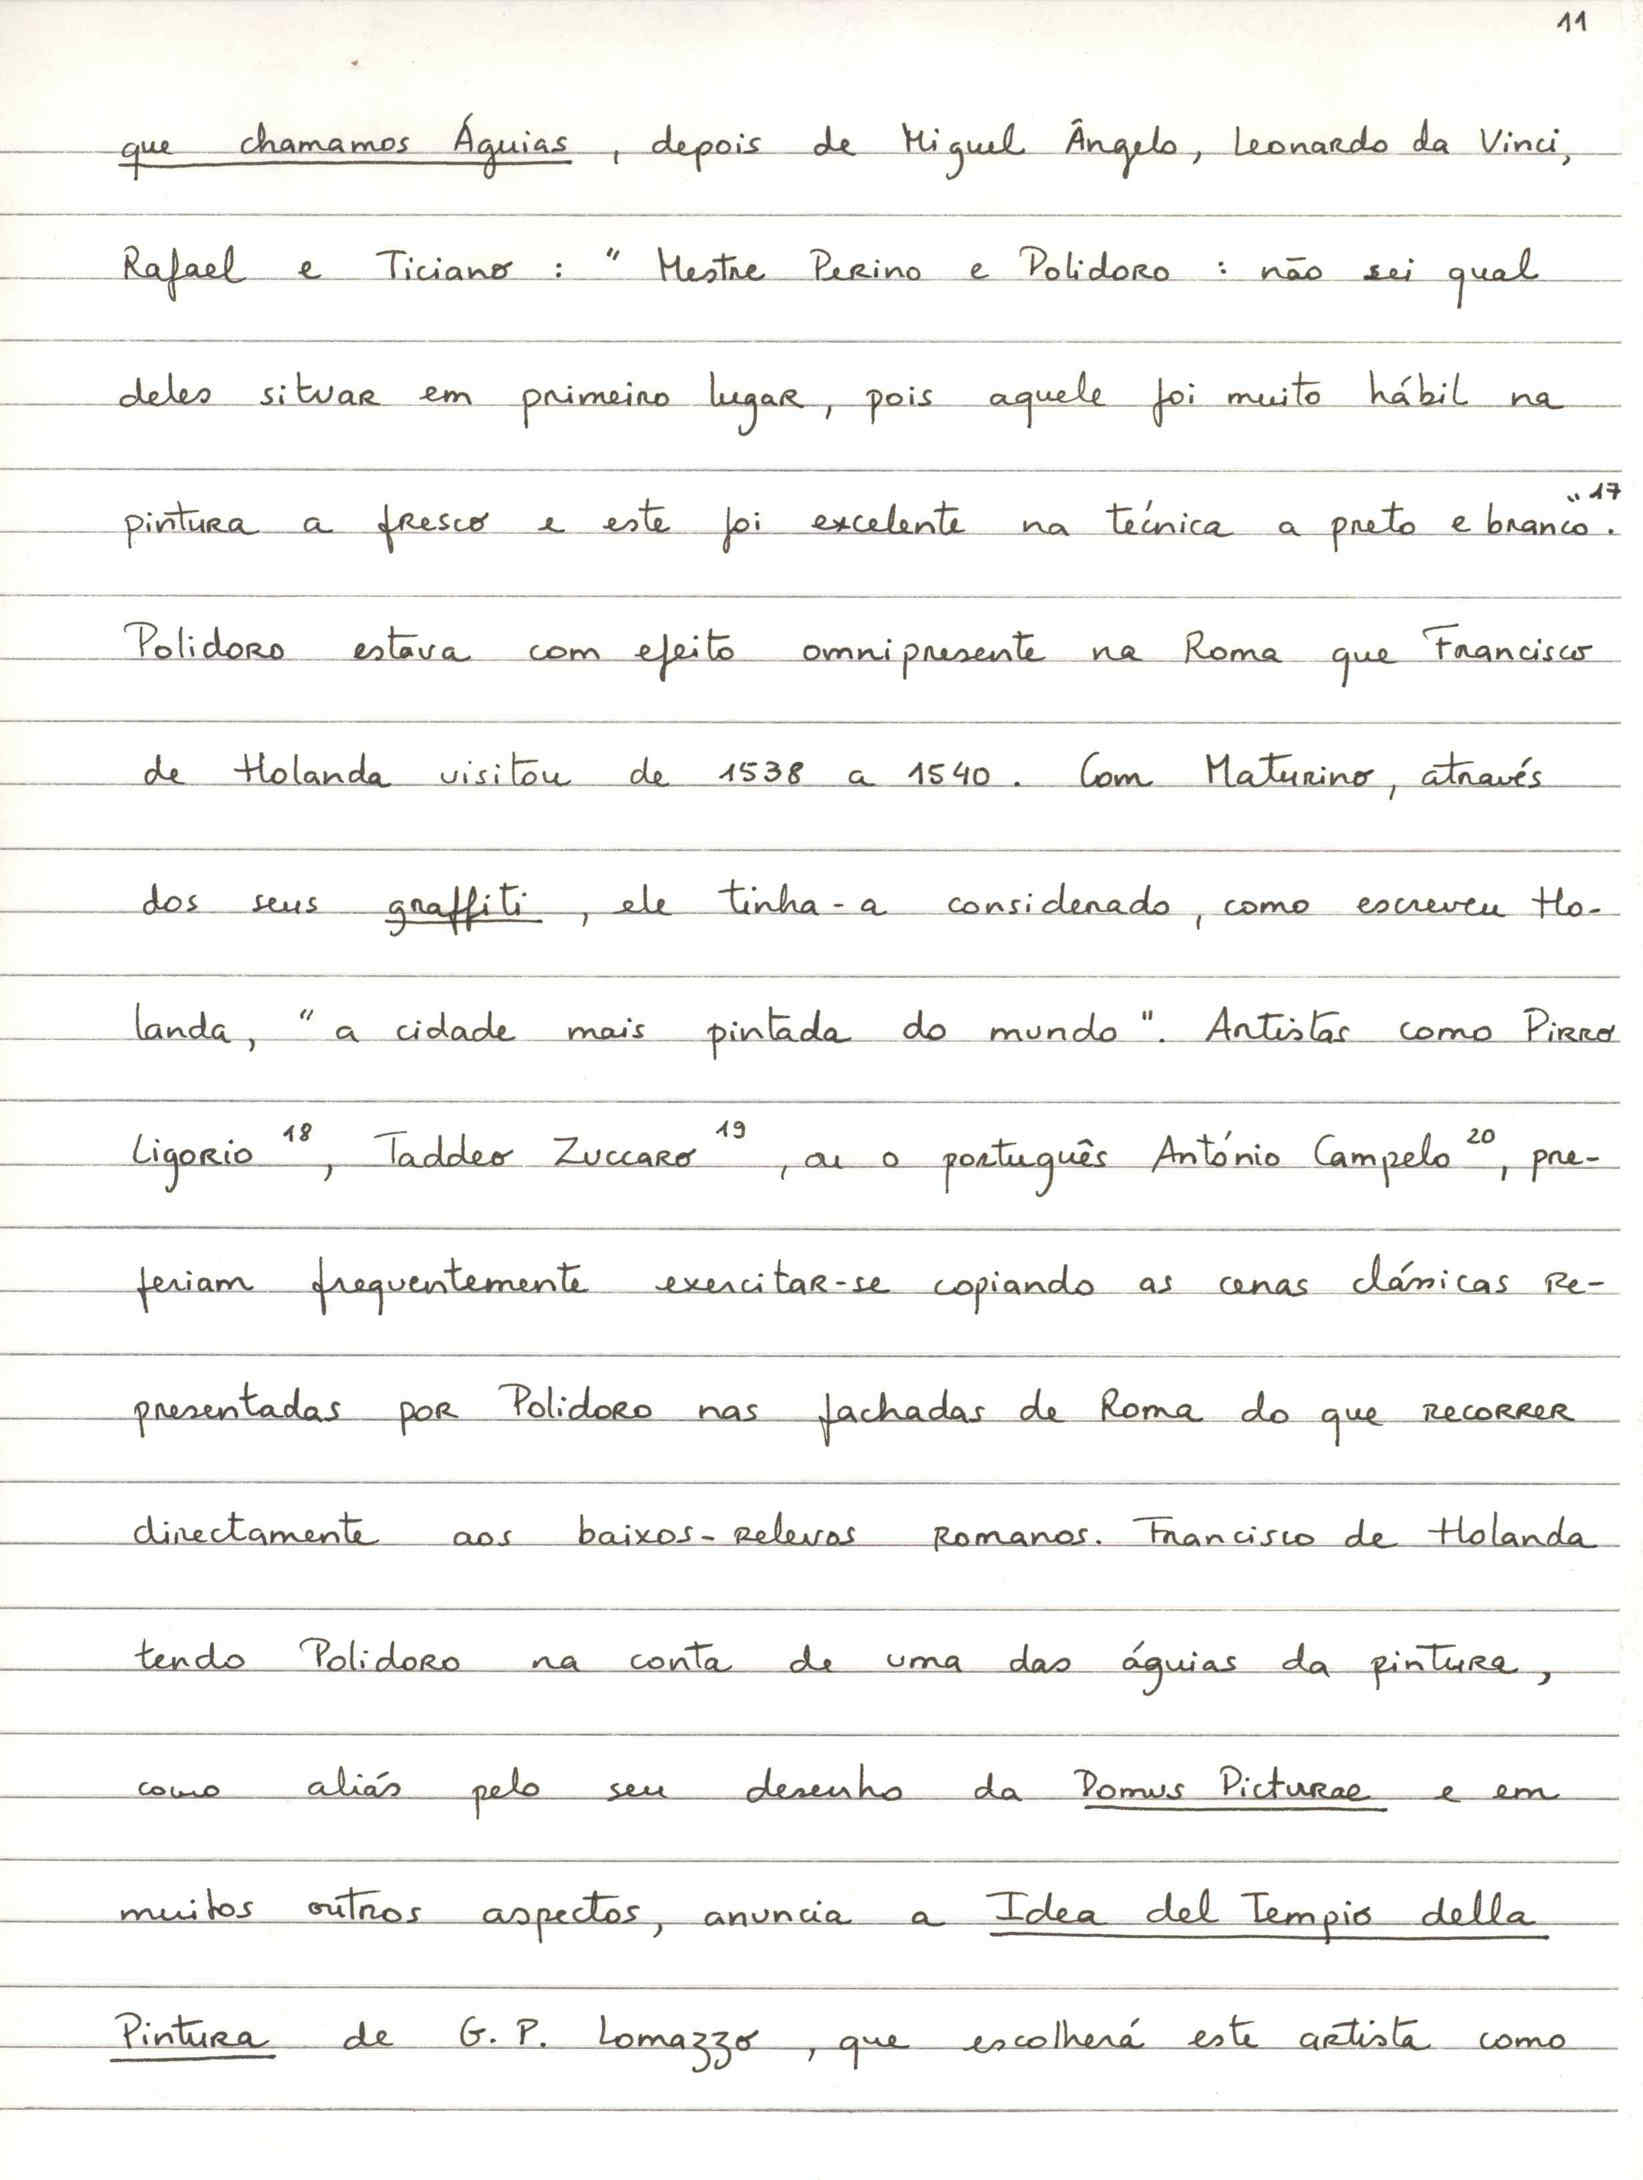 11
que chamamos Águias, depois de Miguel Ângelo, Leonardo da Vinci,
Rafael e Ticiano : " Mestre Perino e Polidoro : não sei qual
deles situar em primeiro lugar, pois aquele foi muito hábil na
pintura a fresco e este foi excelente na técnica a preto e branco". 17
Polidoro estava com efeito omnipresente na Roma que Francisco
de Holanda visitou de 1538 a 1540. Com Maturino, através
dos seus graffiti, ele tinha-a considerado, como escreveu Ho-
landa, " a cidade mais pintada do mundo". Artistas como Pirro
Ligorio 18, Taddeo Zuccaro 19, ou o português António Campelo 20, pre-
feriam frequentemente exercitar-se copiando as cenas clássicas re-
presentadas por Polidoro nas fachadas de Roma do que recorrer
directamente aos baixos-relevos romanos. Francisco de Holanda
tendo Polidoro na conta de uma das águias da pintura,
como aliás pelo seu desenho da Domus Picturae e em
muitos outros aspectos, anuncia a Idea del Tempio della
Pintura de G. P. Lomazzo, que escolherá este artista como